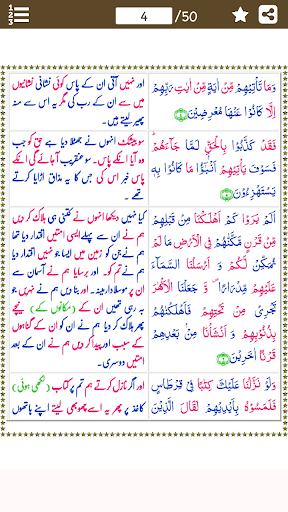 4 /50
وَمَا تَاْتِيْهِمْ مِّنْ اٰيَةٍ مِّنْ اٰيٰتِ رَبِّهِمْ
اِلَّا كَانُوْا عَنْهَا مُعْرِضِيْنَ
اور نہیں آتی ان کے پاس کوئی نشانی نشانیوں
میں سے ان کے رب کی مگر یہ اس سے منہ
پھیر لیتے ہیں۔
فَقَدْ كَذَّبُوْا بِالْحَقِّ لَمَّا جَآءَهُمْ ؕ
فَسَوْفَ يَاْتِيْهِمْ اَنْۢبٰٓؤُا مَا كَانُوْا بِهٖ
يَسْتَهْزِءُوْنَ
سو بیشک انہوں نے جھٹلا دیا ہے حق کو جب
وہ آیا انکے پاس۔ سو عنقریب آجائے گی انکے
پاس خبر اس کی جس کا یہ مذاق اڑایا کرتے
تھے۔
اَلَمْ يَرَوْا كَمْ اَهْلَكْنَا مِنْ قَبْلِهِمْ
مِّنْ قَرْنٍ مَّكَّنّٰهُمْ فِى الْاَرْضِ مَا لَمْ
نُمَكِّنْ لَّكُمْ وَ اَرْسَلْنَا السَّمَآءَ
عَلَيْهِمْ مِّدْرَارًا ۪ وَّ جَعَلْنَا الْاَنْهٰرَ
تَجْرِىْ مِنْ تَحْتِهِمْ فَاَهْلَكْنٰهُمْ
بِذُنُوْبِهِمْ وَ اَنْشَاْنَا مِنْۢ بَعْدِهِمْ
قَرْنًا اٰخَرِيْنَ
کیا نہیں دیکھا انہوں نے کتنی ہی ہلاک کر دیں
ہم نے ان سے پہلے ایسی امتیں اقتدار دیا تھا
ہم نے جن کو زمین میں ایسا جو نہیں اقتدار دیا
ہم نے تم کو۔ اور برسایا ہم نے آسمان سے
ان پر موسلا دار مینہ۔ اور بنا دیں ہم نے نہریں جو
بہ رہی تھیں ان کے (مکانوں کے) نیچے
پھر ہلاک کر دیا ہم نے ان کو ان کے گناہوں
کے سبب اور پیدا کر دیں ہم نے ان کے بعد
امتیں دوسری۔
وَلَوْ نَزَّلْنَا عَلَيْكَ كِتٰبًا فِىْ قِرْطَاسٍ
فَلَمَسُوْهُ بِاَيْدِيْهِمْ لَقَالَ الَّذِيْنَ
اور اگر نازل کرتے ہم تم پر کتاب (لکھی ہوئی)
کاغذ پر پھر یہ اسے چھو بھی لیتے اپنے ہاتھوں